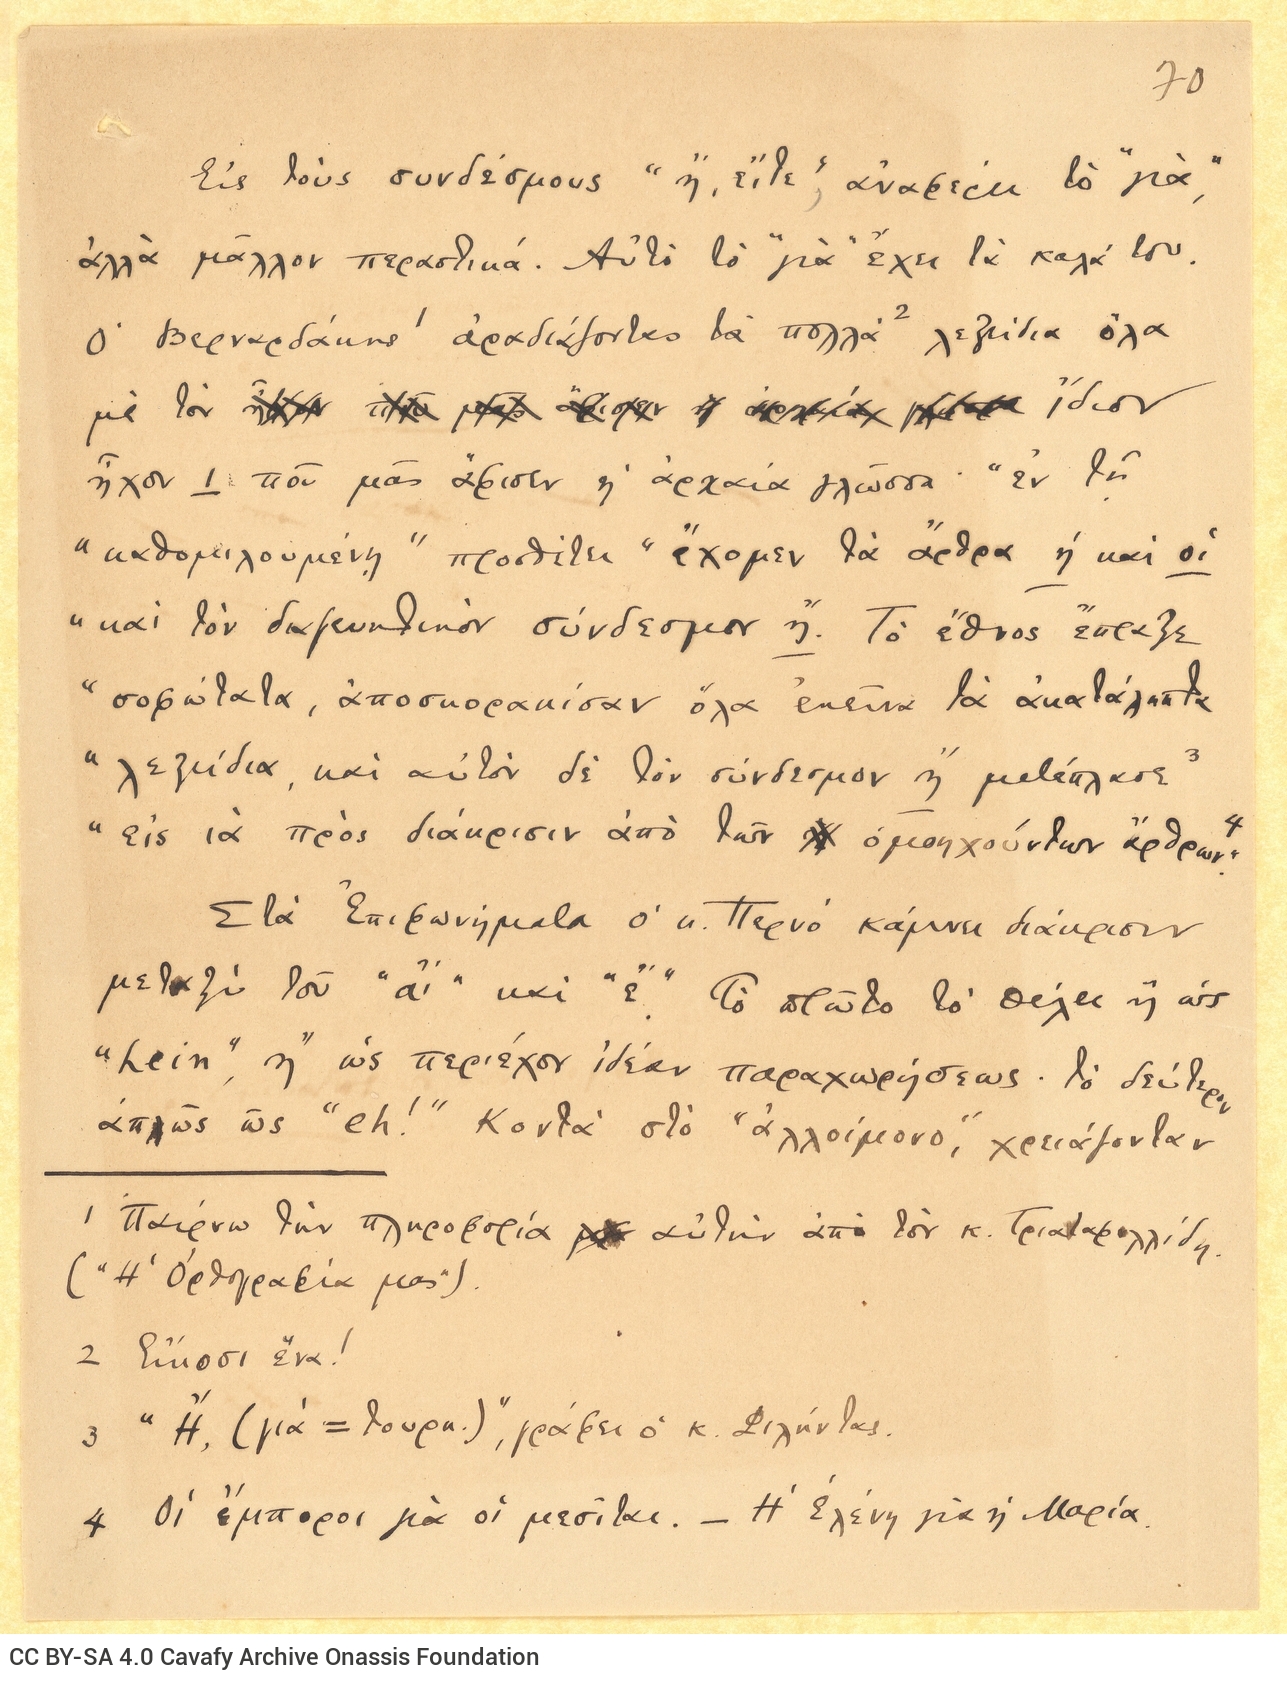 70
Εἰς τοὺς συνδέσμους "ἤ, εἴτε", ἀναφέρει τὸ "γιὰ,"
ἀλλὰ μᾶλλον περαστικά. Αὐτὸ τὸ "γιὰ" ἔχει τὰ καλά του.
Ὁ Βερναρδάκης 1 ἀραδιάζοντας τὰ πολλὰ 2 λεξείδια ὅλα
μὲ τὸν ἴδιον
ἦχον ι ποῦ μᾶς ἄφισεν ἡ ἀρχαία γλῶσσα· "ἐν τῇ
"καθομιλουμένῃ" προσθέτει "ἔχομεν τὰ ἄρθρα ἡ καὶ οἱ
"καὶ τὸν διαζευκτικὸν σύνδεσμον ἤ. Τὸ ἔθνος ἔπραξε
"σοφώτατα, ἀποσκορακίσαν ὅλα ἐκεῖνα τὰ ἀκατάληπτα
"λεξείδια, καὶ αὐτὸν δὲ τὸν σύνδεσμον ἤ μετέπλασε 3
"εἰς ιὰ πρὸς διάκρισιν ἀπὸ τῶν ὁμοηχούντων ἄρθρων." 4
Στὰ Ἐπιφωνήματα ὁ κ. Περνὸ κάμνει διάκρισιν
μεταξὺ τοῦ "αἴ" καὶ "ἔ". Τὸ πρῶτο τὸ θέλει ἢ ὡς
"hein", ἢ ὡς περιέχον ἰδέαν παραχωρήσεως· τὸ δεύτερον
ἁπλῶς ὡς "eh!" Κοντὰ στὸ "ἀλλοίμονο," χρειάζονταν
1 Παίρνω τὴν πληροφορία αὐτὴν ἀπὸ τὸν κ. Τριανταφυλλίδη.
("Ἡ Ὀρθογραφία μας").
2 Εἴκοσι ἕνα!
3 "Ἤ, (γιὰ = τουρκ.)", γράφει ὁ κ. Φιλήντας.
4 Οἱ ἔμποροι γιὰ οἱ μεσῖται. — Ἡ Ἑλένη γιὰ ἡ Μαρία.
CC BY-SA 4.0 Cavafy Archive Onassis Foundation